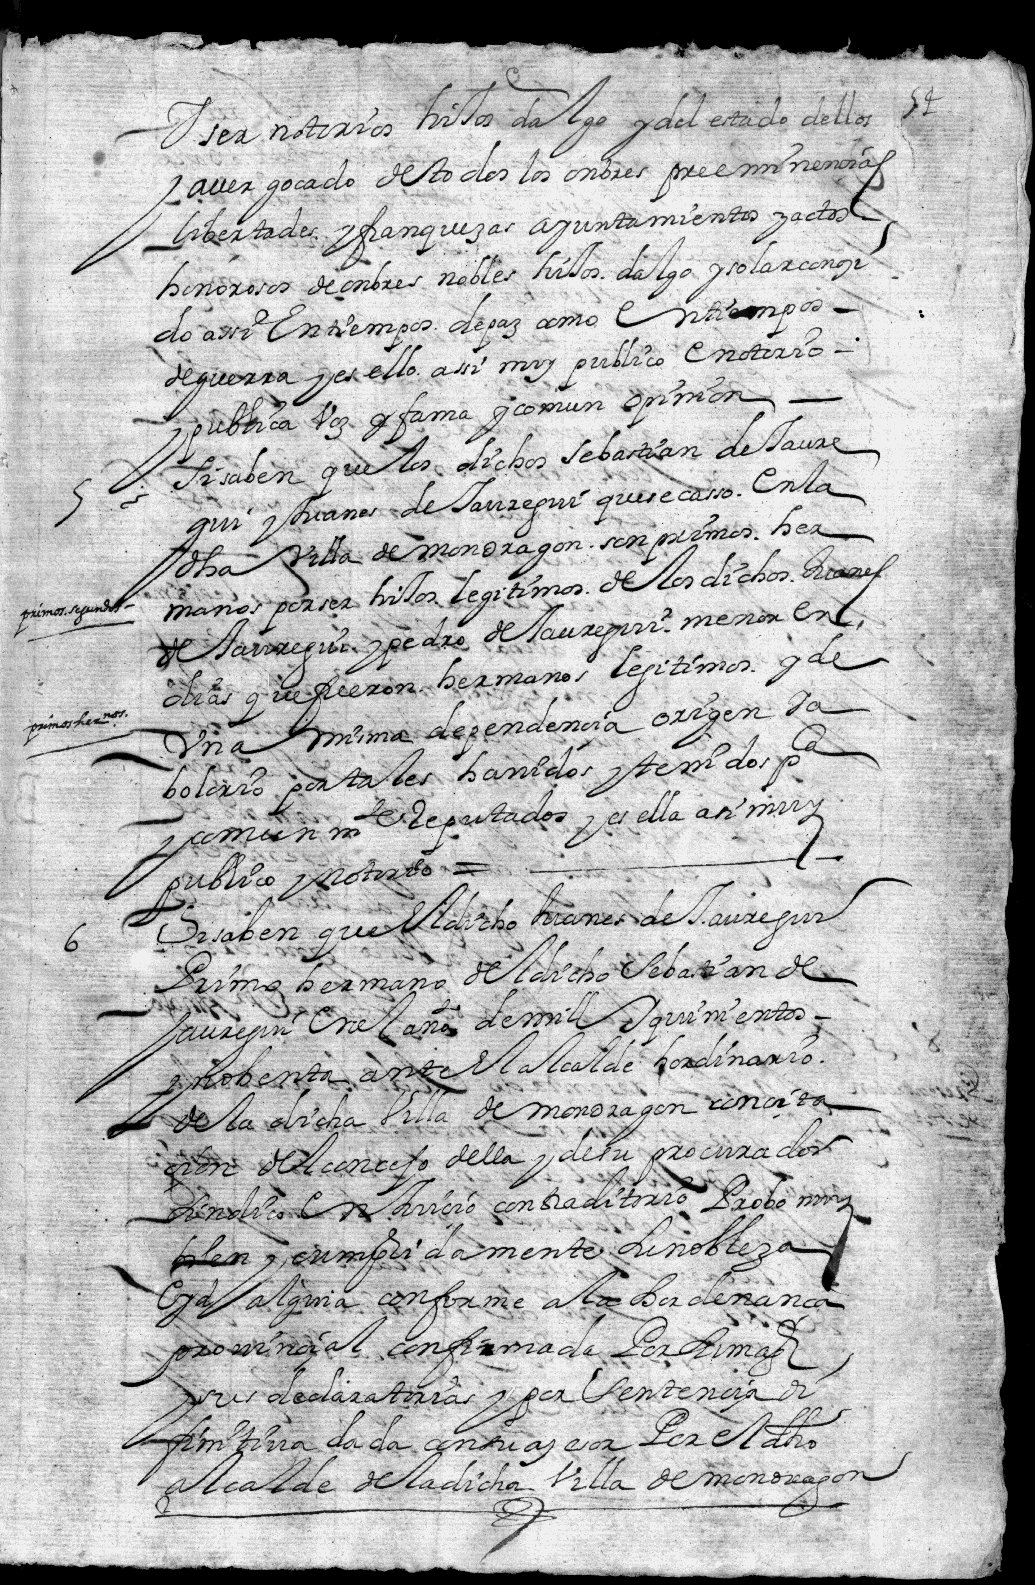 52
y ser notorios hiJos dalgo y del estado dellos
y aver gocado de todos los onbres preeminencias
libertades y franquezas ayuntamientos y actos
honorosos de onbres nobles hiJos dalgo y solar conoçi
do assi En tiempos de paz como En tiempos
de guerra y es ello assi muy publico e notorio
y publica Voz y fama y comun opinion
5 Si saben que los dichos Sebastian de Jaure
gui y Juanes de Jauregui que se casso En la
dha Villa de mondragon son primos her
manos por ser hiJos legitimos de los dichos Juanes
primos segundos
de Jauregui y pedro de Jauregui menor En
dias que fueron hermanos legitimos y de
primos her.nos
Vna misma dependencia origen Ja
bolorio por tales havidos y tenidos p.ca
y comun m.te Reputados y es ello asi muy
publico y notorio =
6 Si saben que El dicho Juanes de Jauregui
Primo hermano del dicho Sebastian de
Jauregui En el año de mill y quinientos
y nobenta ante El alcalde hordinario
de la dicha Villa de mondragon con cita
cion del concejo della y de su procurador
sindico En Juicio contraditorio Probo muy
bien y cumplidamente su nobleza
E ydalguia conforme a la hordenança
provinçial confirmada Por su mag.d
y sus declaratorias y por Sentencia di
finitiva dada con su asesor Por El dho
alcalde de la dicha Villa de mondragon